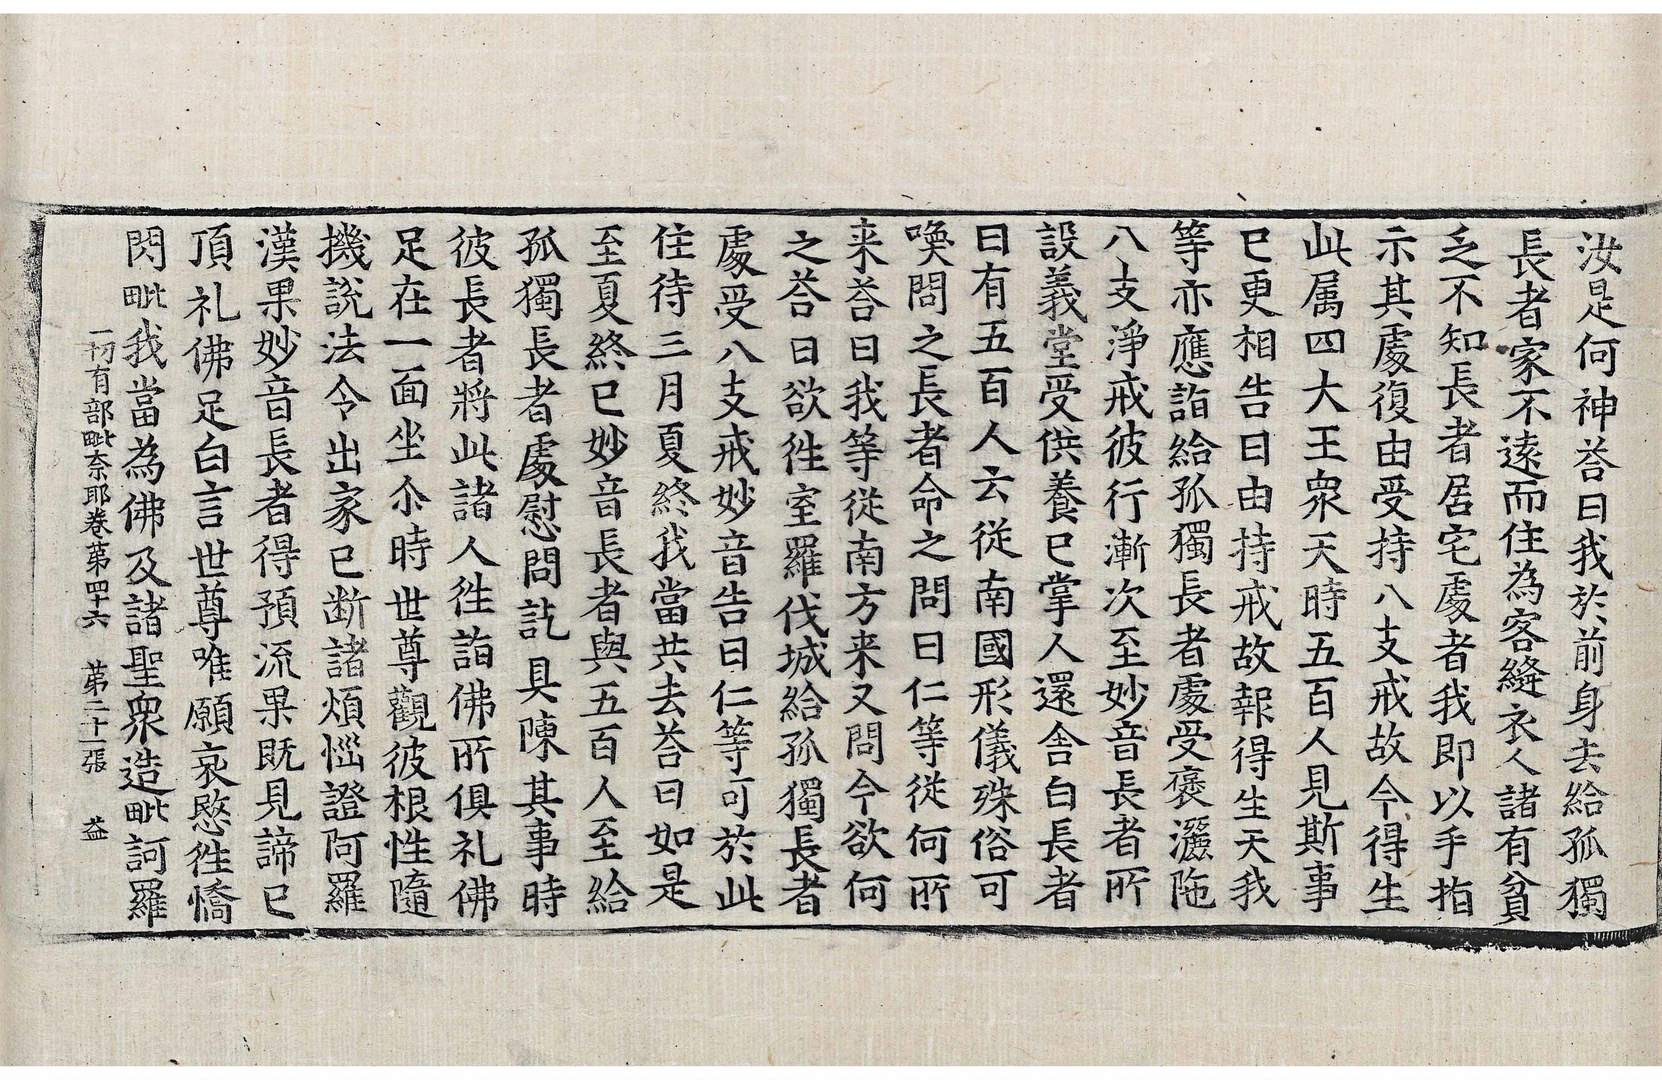 汝是何神荅曰我於前身去給孤獨
長者家不遠而住為客縫衣人諸有貧
乏不知長者居宅處者我即以手指
示其處復由受持八支戒故今得生
此属四大王衆天時五百人見斯事
已更相告曰由持戒故報得生天我
等亦應詣給孤獨長者處受褒灑陁
八支淨戒彼行漸次至妙音長者所
設義堂受供養已掌人還舍白長者
曰有五百人云従南國形儀殊俗可
喚問之長者命之問曰仁等従何所
来荅曰我等従南方来又問今欲何
之荅曰欲徃室羅伐城給孤獨長者
處受八支戒妙音告曰仁等可於此
住待三月夏終我當共去荅曰如是
至夏終已妙音長者與五百人至給
孤獨長者處慰問訖具陳其事時
彼長者將此諸人徃詣佛所俱礼佛
足在一面坐尒時世尊觀彼根性隨
機說法令出家已断諸煩惱證阿羅
漢果妙音長者得預流果既見諦已
頂礼佛足白言世尊唯願哀愍徃憍
閃毗我當為佛及諸聖衆造毗訶羅
一切有部毗奈耶卷苐四十六 苐二十張 益